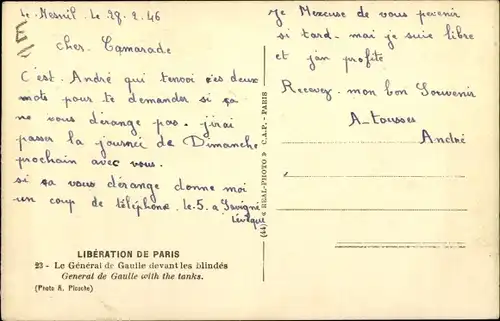 Le Mesnil. Le 28. 2. 46
E
Cher. Camarade
C'est. André qui tenvoi ces deux
mots pour te demander si sa
ne vous dérange pas. jirai
passer la journée de Dimanche
prochain avec vous.
si sa vous dérange donne moi
un coup de téléphone. le. 5. a Savigné
Lévèque
Je Mexcuse de vous prevenir
si tard. mai je suie libre
et jan profite
Recevez. mon bon Souvenir
A_tousses
André
LIBÉRATION DE PARIS
23 - Le Général de Gaulle devant les blindés
General de Gaulle with the tanks.
(Photo R. Picoche)
(44) « REAL-PHOTO » C.A.P. - PARIS